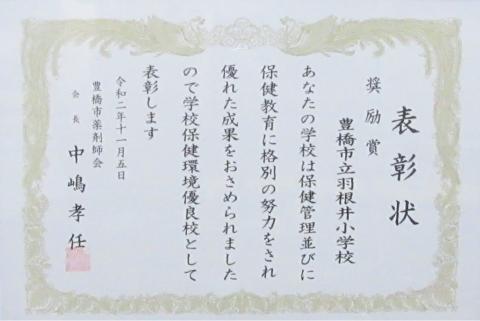 表彰状
奨励賞
豊橋市立羽根井小学校
あなたの学校は保健管理並びに
保健教育に格別の努力をされ
優れた成果をおさめられました
ので学校保健環境優良校として
表彰します
令和二年十一月五日
豊橋市薬剤師会
会長 中嶋孝任